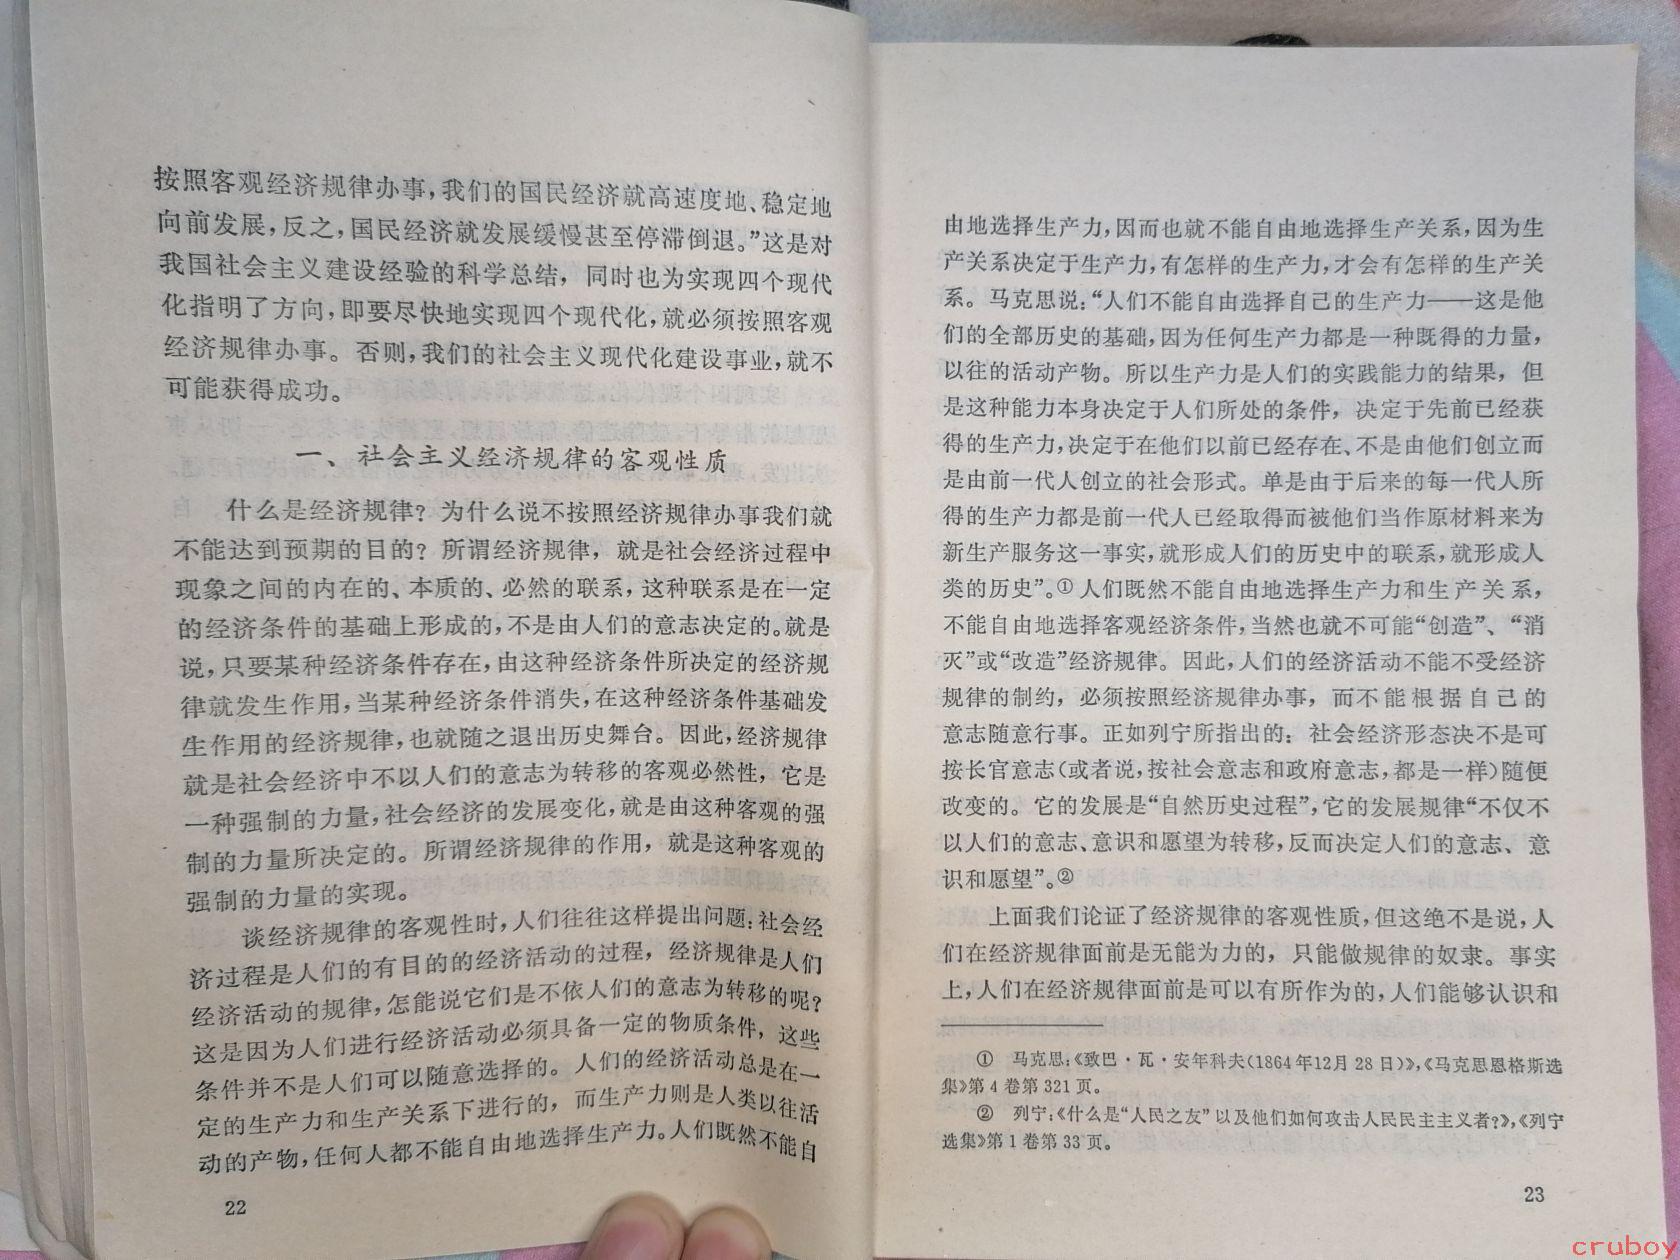 按照客观经济规律办事,我们的国民经济就高速度地、稳定地
向前发展,反之,国民经济就发展缓慢甚至停滞倒退。”这是对
我国社会主义建设经验的科学总结,同时也为实现四个现代
化指明了方向,即要尽快地实现四个现代化,就必须按照客观
经济规律办事。否则,我们的社会主义现代化建设事业,就不
可能获得成功。
一、社会主义经济规律的客观性质
什么是经济规律?为什么说不按照经济规律办事我们就
不能达到预期的目的?所谓经济规律,就是社会经济过程中
现象之间的内在的、本质的、必然的联系,这种联系是在一定
的经济条件的基础上形成的,不是由人们的意志决定的。就是
说,只要某种经济条件存在,由这种经济条件所决定的经济规
律就发生作用,当某种经济条件消失,在这种经济条件基础发
生作用的经济规律,也就随之退出历史舞台。因此,经济规律
就是社会经济中不以人们的意志为转移的客观必然性,它是
一种强制的力量,社会经济的发展变化,就是由这种客观的强
制的力量所决定的。所谓经济规律的作用,就是这种客观的
强制的力量的实现。
谈经济规律的客观性时,人们往往这样提出问题:社会经
济过程是人们的有目的的经济活动的过程,经济规律是人们
经济活动的规律,怎能说它们是不依人们的意志为转移的呢?
这是因为人们进行经济活动必须具备一定的物质条件,这些
条件并不是人们可以随意选择的。人们的经济活动总是在一
定的生产力和生产关系下进行的,而生产力则是人类以往活
动的产物,任何人都不能自由地选择生产力。人们既然不能自
22
由地选择生产力,因而也就不能自由地选择生产关系,因为生
产关系决定于生产力,有怎样的生产力,才会有怎样的生产关
系。马克思说:“人们不能自由选择自己的生产力——这是他
们的全部历史的基础,因为任何生产力都是一种既得的力量,
以往的活动产物。所以生产力是人们的实践能力的结果,但
是这种能力本身决定于人们所处的条件,决定于先前已经获
得的生产力,决定于在他们以前已经存在、不是由他们创立而
是由前一代人创立的社会形式。单是由于后来的每一代人所
得的生产力都是前一代人已经取得而被他们当作原材料来为
新生产服务这一事实,就形成人们的历史中的联系,就形成人
类的历史”。①人们既然不能自由地选择生产力和生产关系,
不能自由地选择客观经济条件,当然也就不可能“创造”、“消
灭”或“改造”经济规律。因此,人们的经济活动不能不受经济
规律的制约,必须按照经济规律办事,而不能根据自己的
意志随意行事。正如列宁所指出的:社会经济形态决不是可
按长官意志(或者说,按社会意志和政府意志,都是一样)随便
改变的。它的发展是“自然历史过程”,它的发展规律“不仅不
以人们的意志、意识和愿望为转移,反而决定人们的意志、意
识和愿望”。②
上面我们论证了经济规律的客观性质,但这绝不是说,人
们在经济规律面前是无能为力的,只能做规律的奴隶。事实
上,人们在经济规律面前是可以有所作为的,人们能够认识和
① 马克思:《致巴·瓦·安年科夫(1864年12月28日)》,《马克思恩格斯选
集》第4卷第321页。
② 列宁:《什么是“人民之友”以及他们如何攻击人民民主主义者?》,《列宁
选集》第1卷第33页。
23
cruboy